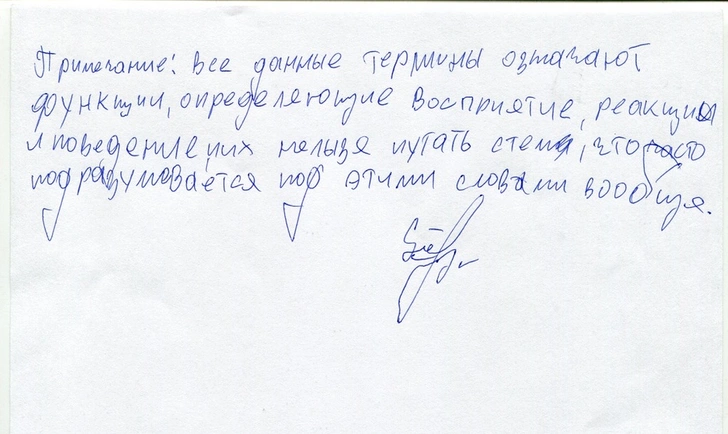 Примечание: все данные термины означают
функции, определяющие восприятие, реакции
и поведение, их нельзя путать с тем, что часто
подразумевается под этими словами вообще.